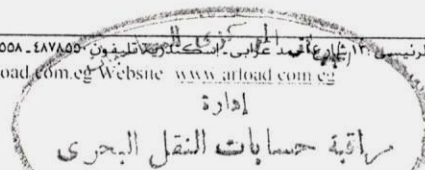 الرئيسى : ١٣ شارع أحمد عرابى - اسكندرية تليفون ٤٨٧٨٥٥ - ٥٥٨
oad.com.eg Website www.arload.com.eg
إدارة
مراقبة حسابات النقل البحرى